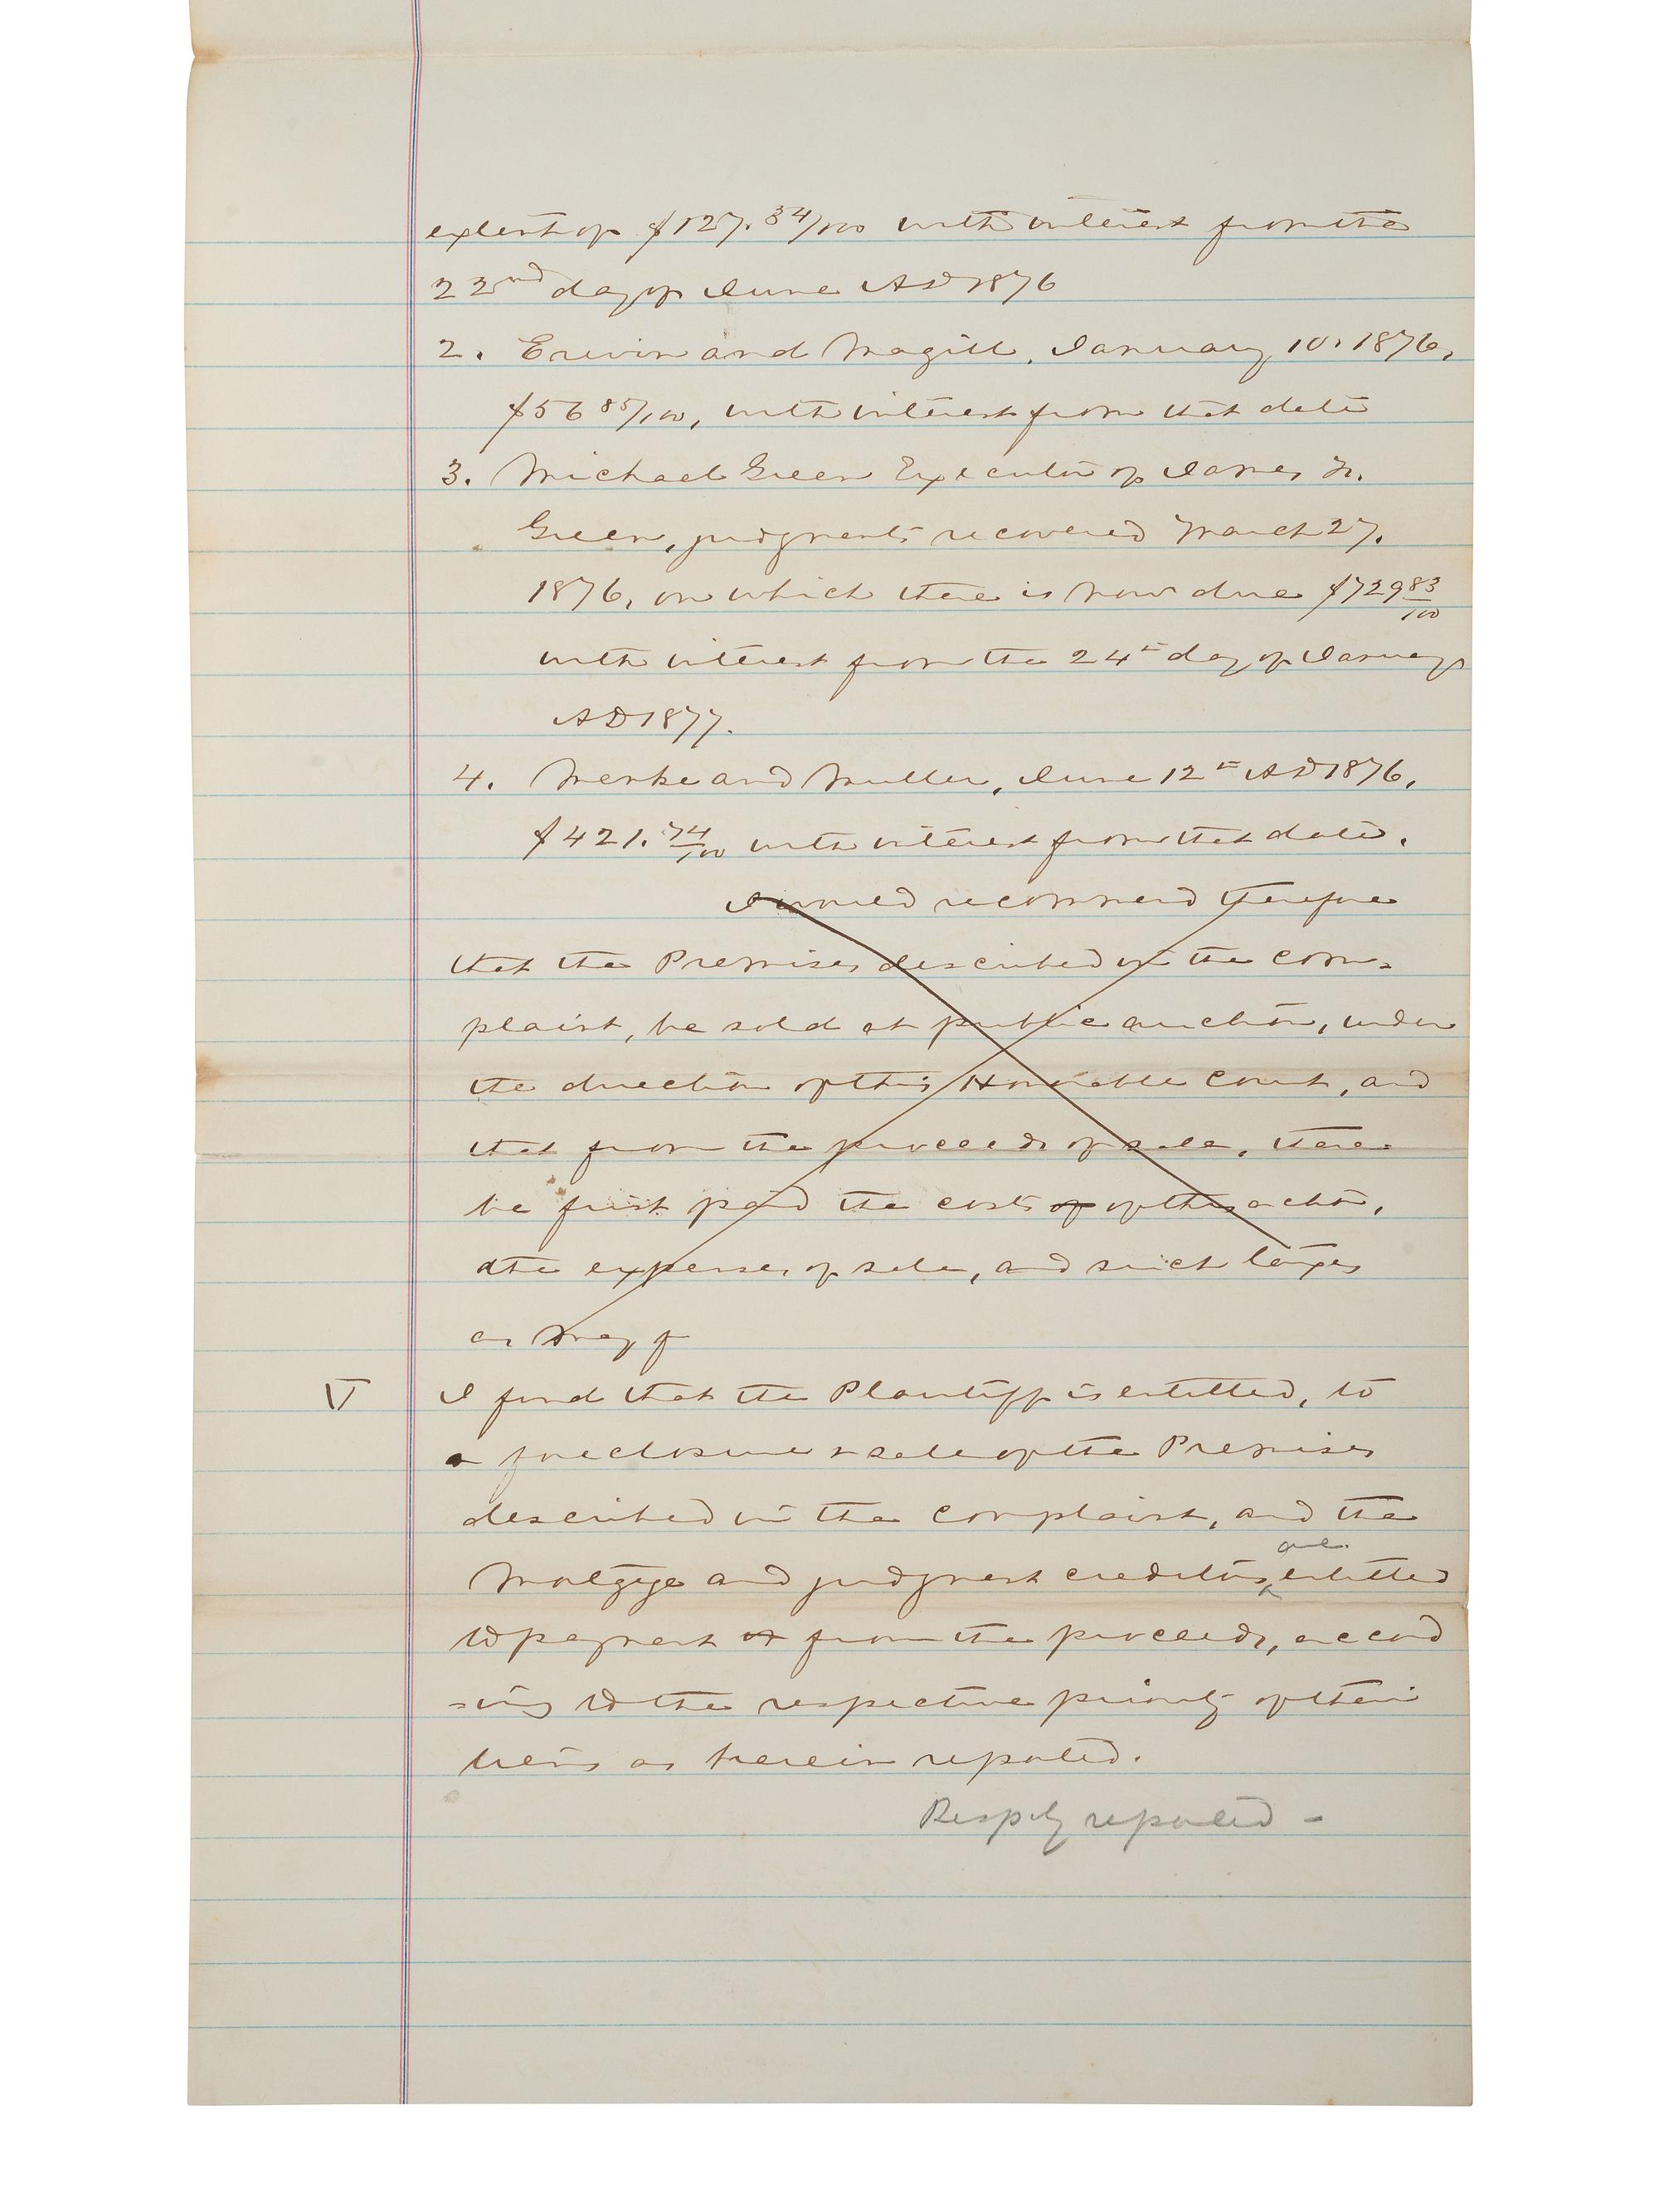 extent of $127.34/100 with interest from the
22nd day of June AD 1876
2. Erwin and Magill, January 10. 1876,
$56 85/100, with interest from that date
3. Michael Green Executor of James
Green, judgments recovered March 27.
1876, on which there is now due $729 83/100
with interest from the 24th day of January
AD 1877.
4. Menke and Muller, June 12th AD 1876,
$421.74/100 with interest from that date.
I would recommend therefore
that the Premises described in the com=
plaint, be sold at public auction, under
the direction of this Honorable Court, and
that from the proceeds of sale, there
be first paid the costs of of this action,
the expenses of sale, and such taxes
as may f
V I find that the Plaintiff is entitled, to
a foreclosure & sale of the Premises
described in the Complaint, and the
Mortgage and judgment creditors are entitled
to payment from the proceeds, accord
=ing to the respective priority of their
liens as herein reported.
Respty reported -